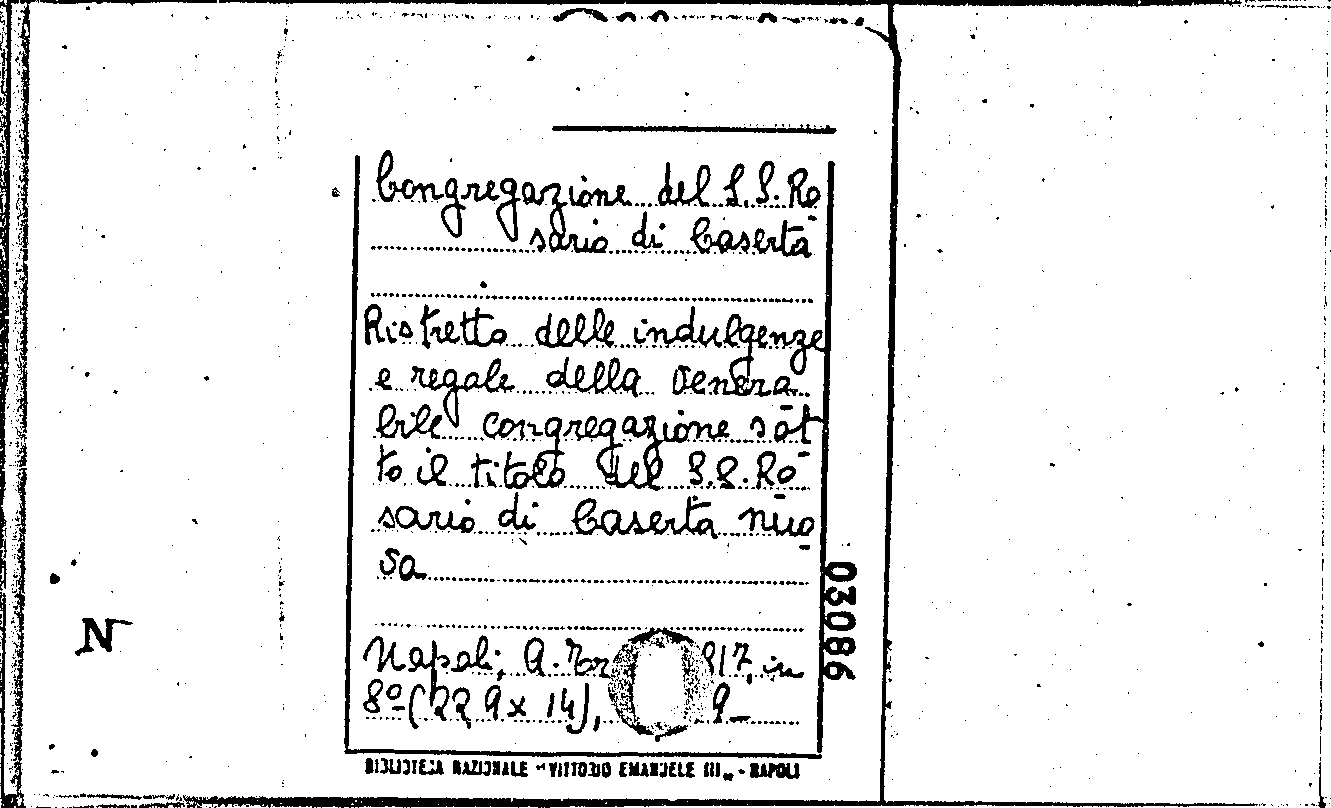 Congregazione del S.S. Ro
sario di Caserta
Ristretto delle indulgenze
e regale della venera
bile congregazione sot
to il titolo del S.S. Ro
sario di Caserta nuo
sa
03086
N
Napoli, A. 817, in
8º (22,9 x 14), 9
BIBLIOTECA NAZIONALE "VITTORIO EMANUELE III" - NAPOLI